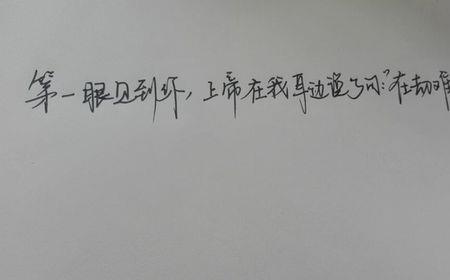 第一眼见到你，上帝在我耳边说了句：“在劫难